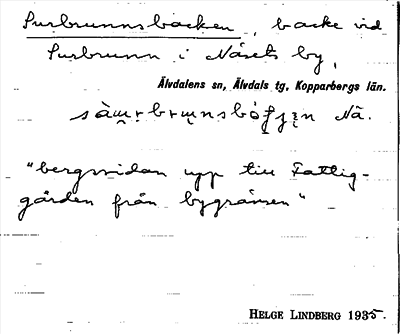 Surbrunnsbacken, backe vid
Surbrunn i Näsets by,
Älvdalens sn, Älvdals tg, Kopparbergs län.
Nä.
"bergsidan upp till Fattig-
gården från bygränsen"
HELGE LINDBERG 1935.